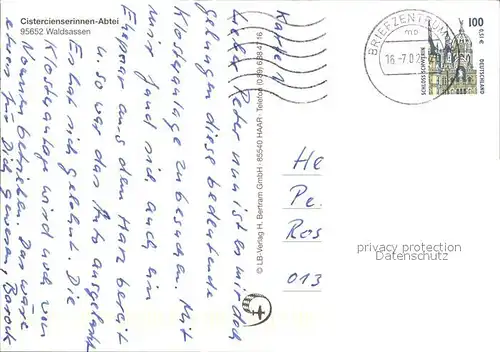 Cistercienserinnen-Abtei
95652 Waldsassen
Karte 1
Lieber Peter nun ist es mir doch
gelungen diese bedeutende
Klosteranlage zu besuchen. Mit
mir fand sich auch ein
Ehepaar aus dem Harz bereit
u. so war das Auto ausgelastet
Es hat sich gelohnt. Die
Klosteranlage wird noch von
Nonnen betrieben. Das wäre
etwas für Dich gewesen, Barock
© LB-Verlag H. Bertram GmbH · 85540 HAAR · Telefon (089)
BRIEFZENTRUM
mp
16.-7.02
100
0,51 €
SCHLOSS SCHWERIN
DEUTSCHLAND
He
Pe.
Ros
013
privacy protection
Datenschutz